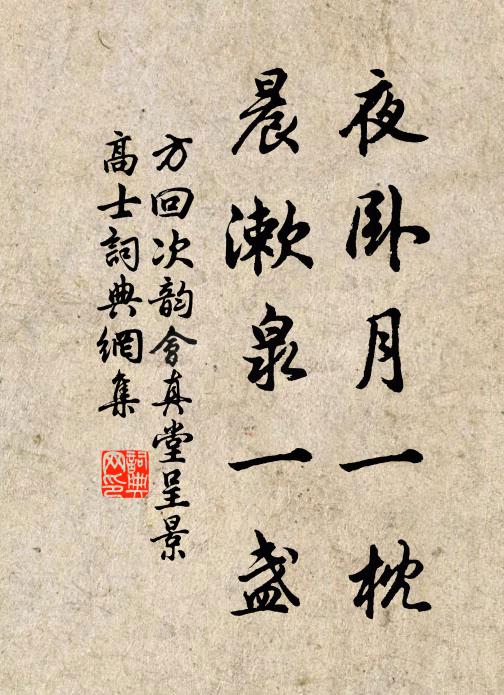 夜卧月一枕
晨漱泉一盏
方回次韵会真堂呈景
高士词典網集
詞典網印